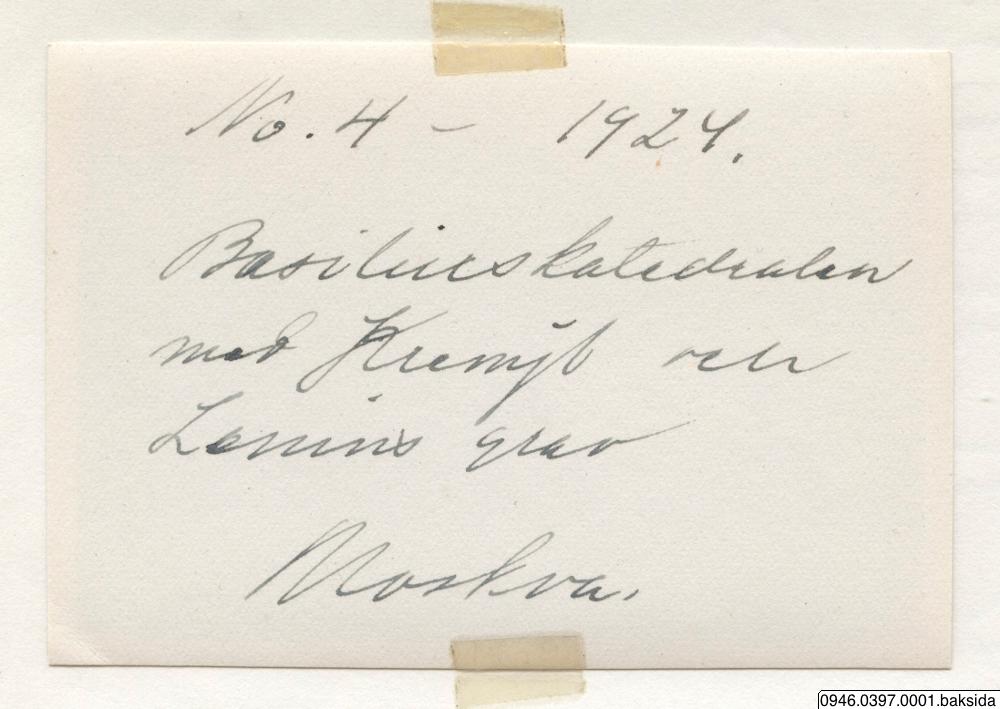 No. 4 – 1924.
Basiliuskatedralen
med Kremyl och
Lenins grav
Moskva.
0946.0397.0001.baksida